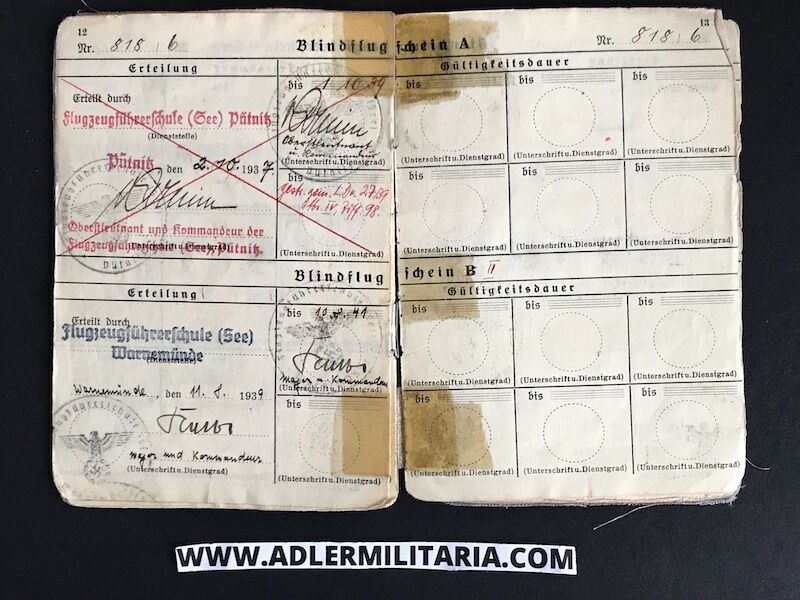 12
Nr. 818/6
Blindflugschein A
13
Nr. 818/6
Erteilung
Gültigkeitsdauer
Erteilt durch
Flugzeugführerschule (See) Pütnitz
(Dienststelle)
Pütnitz, den 2.10.1937
Oberstleutnant und Kommandeur der
Flugzeugführerschule (See), Pütnitz.
(Unterschrift u. Dienstgrad)
bis 1.10.39
Oberstleutnant
u. Kommandeur
(Unterschrift u. Dienstgrad)
bis
gestr. gem. L.Dv. 27.89
Ziff. 98.
(Unterschrift u. Dienstgrad)
bis
bis
bis
(Unterschrift u. Dienstgrad)
(Unterschrift u. Dienstgrad)
(Unterschrift u. Dienstgrad)
bis
bis
bis
(Unterschrift u. Dienstgrad)
(Unterschrift u. Dienstgrad)
(Unterschrift u. Dienstgrad)
Blindflugschein B II
Erteilung
Gültigkeitsdauer
Erteilt durch
Flugzeugführerschule (See)
Warnemünde
(Dienststelle)
Warnemünde, den 11.8.1939
Major und Kommandeur
(Unterschrift u. Dienstgrad)
bis 10.8.41
Major u. Kommandeur
(Unterschrift u. Dienstgrad)
bis
(Unterschrift u. Dienstgrad)
bis
bis
bis
(Unterschrift u. Dienstgrad)
(Unterschrift u. Dienstgrad)
(Unterschrift u. Dienstgrad)
bis
bis
bis
(Unterschrift u. Dienstgrad)
(Unterschrift u. Dienstgrad)
(Unterschrift u. Dienstgrad)
WWW.ADLERMILITARIA.COM